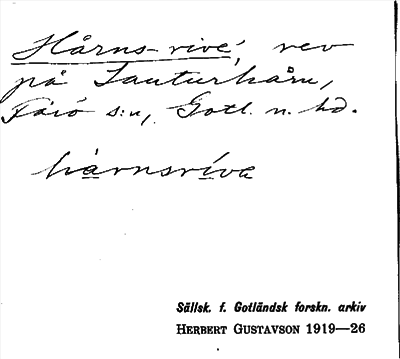 Hårns-rivé, rev
på Lauturhårn,
Fårö s:n, Gotl. n. hd.
hårnsríva
Sällsk. f. Gotländsk forskn. arkiv
HERBERT GUSTAVSON 1919—26